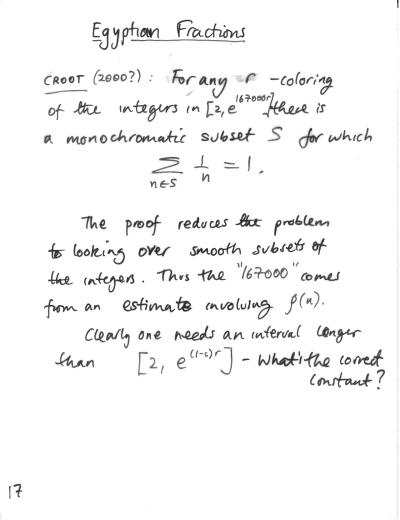 Egyptian Fractions
CROOT (2000?) : For any r -coloring
of the integers in [2, e^{167000r}] there is
a monochromatic subset S for which
∑_{n∈S} 1/n = 1.
The proof reduces the problem
to looking over smooth subsets of
the integers. Thus the "167000" comes
from an estimate involving ρ(u).
Clearly one needs an interval longer
than [2, e^{(1-ε)r}] - What's the correct
constant?
17